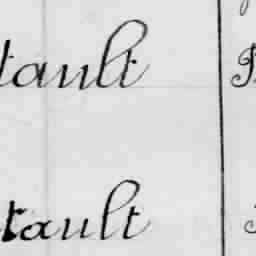 tault
tault